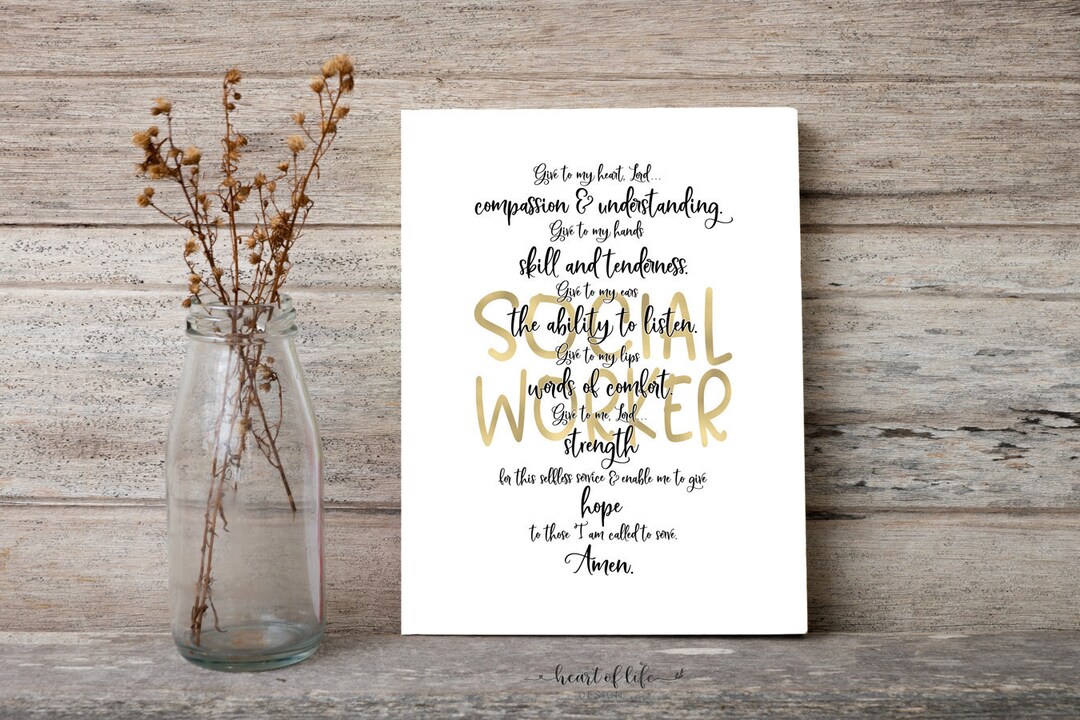 Give to my heart, Lord...
compassion & understanding.
Give to my hands
skill and tenderness.
Give to my ears
SOCIAL
the ability to listen.
Give to my lips
WORKER
words of comfort.
Give to me, Lord...
strength
for this selfless service & enable me to give
hope
to those I am called to serve.
Amen.
heart of life
DESIGN